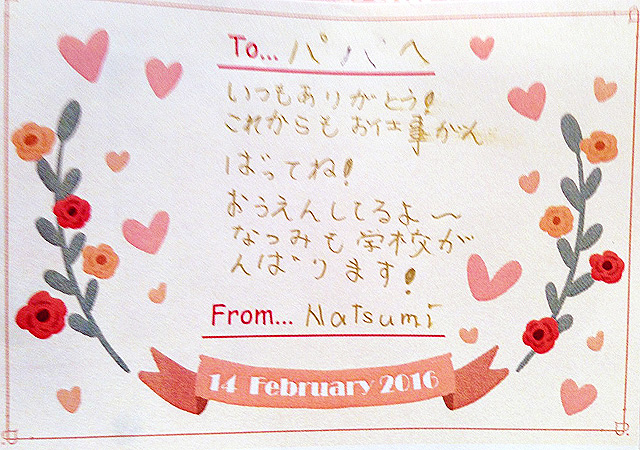 To... パパへ
いつもありがとう!
これからもお仕事がん
ばってね!
おうえんしてるよ〜
なつみも学校が
んばります!
From... Natsumi
14 February 2016